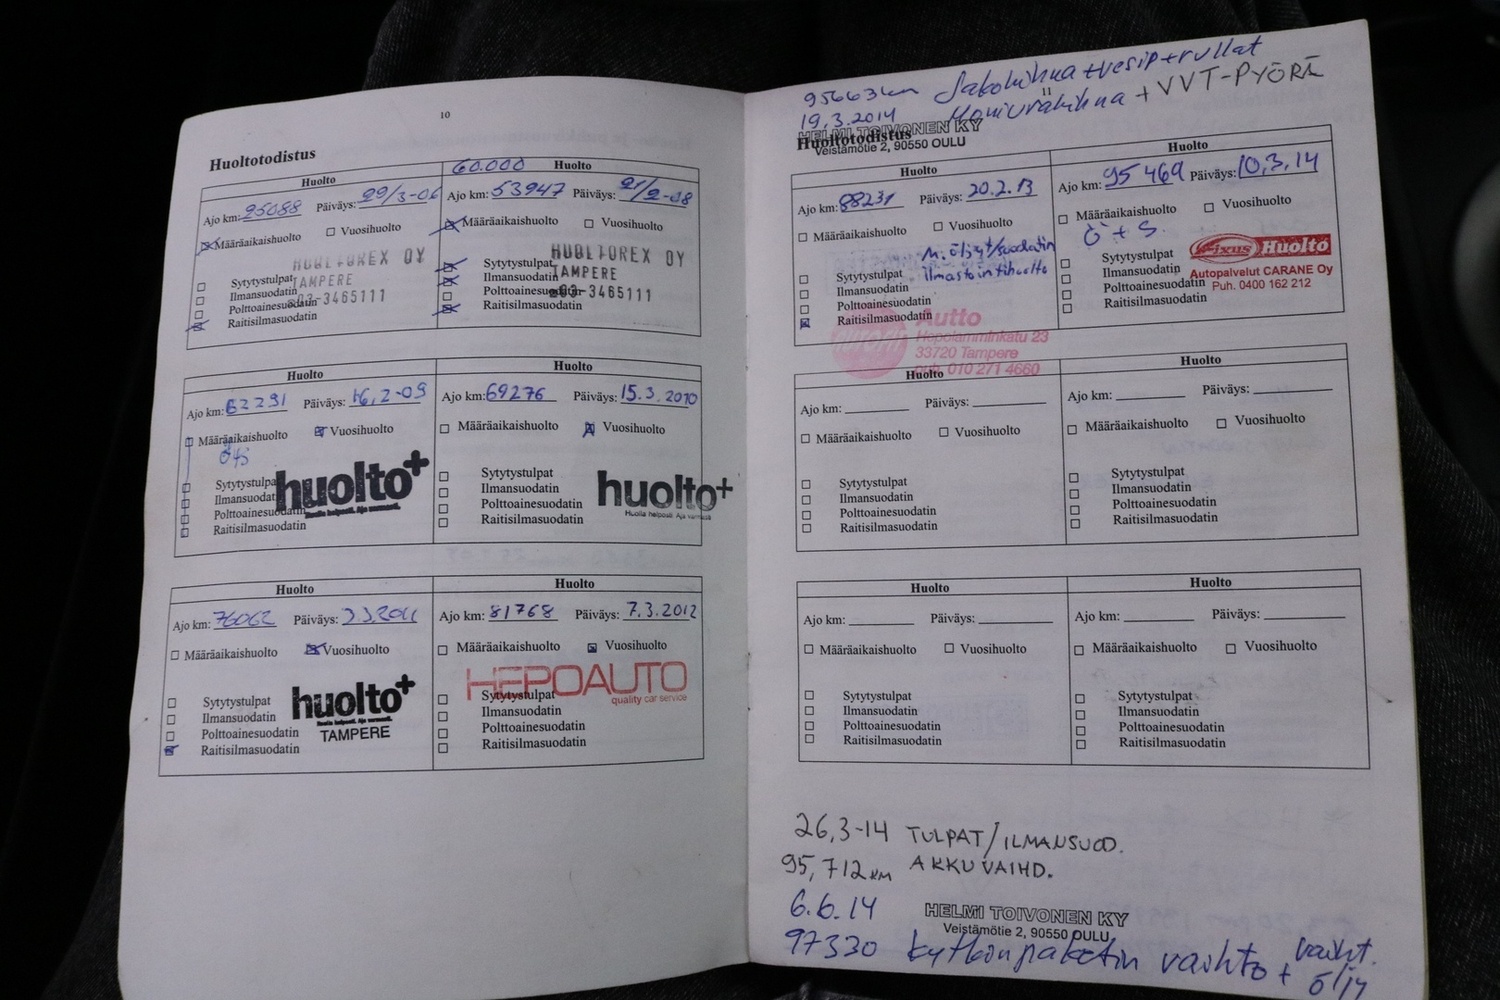 10
Huoltotodistus
Huolto
Ajo km: 25088 Päiväys: 29/3-06
Määräaikaishuolto Vuosihuolto
HUOLTOREX OY
TAMPERE
03-3465111
Sytytystulpat
Ilmansuodatin
Polttoainesuodatin
Raitisilmasuodatin
60.000
Huolto
Ajo km: 53947 Päiväys: 21/2-08
Määräaikaishuolto Vuosihuolto
HUOLTOREX OY
TAMPERE
03-3465111
Sytytystulpat
Ilmansuodatin
Polttoainesuodatin
Raitisilmasuodatin
Huolto
Ajo km: 62291 Päiväys: 16,2-09
Määräaikaishuolto Vuosihuolto
Ö+S
Sytytystulpat
Ilmansuodatin
Polttoainesuodatin
Raitisilmasuodatin
huolto+
Huolla helposti. Aja varmasti.
Huolto
Ajo km: 69276 Päiväys: 15.3.2010
Määräaikaishuolto Vuosihuolto
Sytytystulpat
Ilmansuodatin
Polttoainesuodatin
Raitisilmasuodatin
huolto+
Huolla helposti. Aja varmasti.
Huolto
Ajo km: 76062 Päiväys: 2.3.2011
Määräaikaishuolto Vuosihuolto
Sytytystulpat
Ilmansuodatin
Polttoainesuodatin
Raitisilmasuodatin
huolto+
Huolla helposti. Aja varmasti.
TAMPERE
Huolto
Ajo km: 81768 Päiväys: 7.3.2012
Määräaikaishuolto Vuosihuolto
HEPOAUTO
quality car service
Sytytystulpat
Ilmansuodatin
Polttoainesuodatin
Raitisilmasuodatin
95663km Jakohihna+vesip+rullat
11
19.3.2014 Moniurahihna + VVT-PYÖRÄ
HELMI TOIVONEN KY
Veistämötie 2, 90550 OULU
Huoltotodistus
Huolto
Ajo km: 88231 Päiväys: 20.2.13
Määräaikaishuolto Vuosihuolto
M.öljyt/suodatin
ilmastointihuolto
Sytytystulpat
Ilmansuodatin
Polttoainesuodatin
Raitisilmasuodatin
Autto
Hepolamminkatu 23
33720 Tampere
puh. 010 271 4660
Huolto
Ajo km: 95469 Päiväys: 10.3.14
Määräaikaishuolto Vuosihuolto
Ö + S.
Sytytystulpat
Ilmansuodatin
Polttoainesuodatin
Raitisilmasuodatin
Fixus Huolto
Autopalvelut CARANE Oy
Puh. 0400 162 212
Huolto
Ajo km: Päiväys:
Määräaikaishuolto Vuosihuolto
Sytytystulpat
Ilmansuodatin
Polttoainesuodatin
Raitisilmasuodatin
Huolto
Ajo km: Päiväys:
Määräaikaishuolto Vuosihuolto
Sytytystulpat
Ilmansuodatin
Polttoainesuodatin
Raitisilmasuodatin
Huolto
Ajo km: Päiväys:
Määräaikaishuolto Vuosihuolto
Sytytystulpat
Ilmansuodatin
Polttoainesuodatin
Raitisilmasuodatin
Huolto
Ajo km: Päiväys:
Määräaikaishuolto Vuosihuolto
Sytytystulpat
Ilmansuodatin
Polttoainesuodatin
Raitisilmasuodatin
26,3-14 TULPAT/ILMANSUOD.
95,712KM AKKU VAIHD.
6.6.14
HELMI TOIVONEN KY
Veistämötie 2, 90550 OULU
97330 kytkinpaketin vaihto + vaiht.
öljy